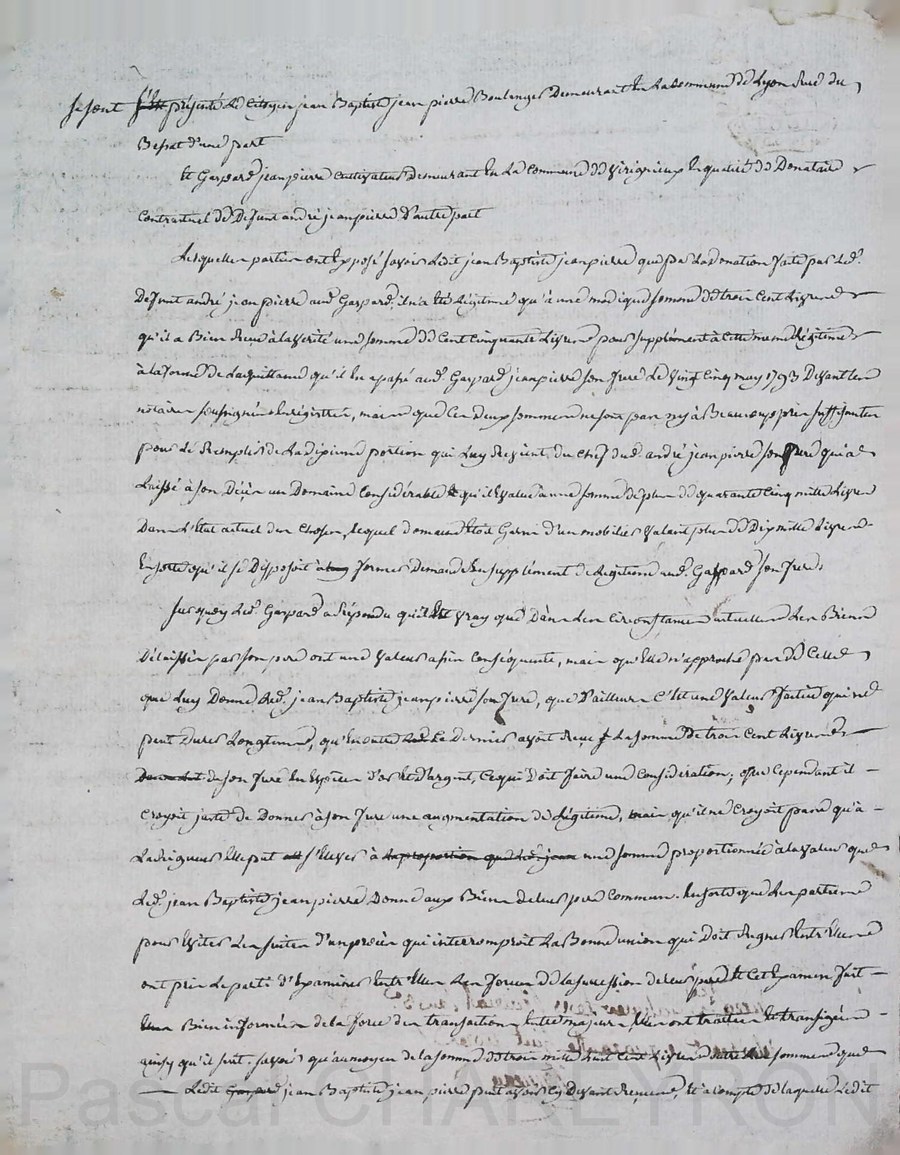 se sont s'est présenté le Citoyen jean Baptiste jeanpierre Boulanger Demeurant En La Commune de Lyon Rue du
Bessat d'une part
Et Gaspard jeanpierre Cultivateur Demeurant En La Commune de Virignieux En qualité de Donataire
Contractuel de Defunt andré jeanpierre D'autre part
Lesquelles parties ont Exposé savoir Ledit jean Baptiste jeanpierre que par La donation faite par led.
Defunt andré jeanpierre aud. Gaspard, il n'a Eté Légitimé qu'à une modique somme de trois Cent Livres
qu'il a Bien Reçu à la vérité une somme de Cent Cinquante Livres pour supplément à Cette meme Légitime
à la forme de La quittance qu'il En a passé aud. Gaspard jeanpierre son frere Le Vingt Cinq mars 1793 Devant Les
notaires soussignés Enregistrée, mais que Ces deux sommes ne sont pas ny à Beaucoup près suffisantes
pour Le Remplir de La dixieme portion qui Luy Revient du Chef dud. andré jeanpierre son pere qui a
Laissé à son Décès un Domaine Considérable qu'il Evalue à une somme de plus de quarante Cinq mille Livres
Dans L'Etat actuel des Choses, Lequel domaine Etoit Garni d'un mobilier Valant plus de Dix mille Livres
En sorte qu'il se Disposoit à former Demande En supplément de Légitime aud. Gaspard son frere.
Sur quoy Led. Gaspard a Répondu qu'il Est Vray que Dans Les Circonstances actuelles Les Biens
Délaissés par son pere ont une Valeur assés Conséquente, mais qu'Elle n'approche pas de Celle
que Luy Donne Led. jean Baptiste jeanpierre son frere, que D'ailleurs C'Est une Valeur factice qui ne
peut Durer Longtems, qu'En outre Ce Dernier avoit Reçu La somme de trois Cent Livres
de son frere En Especes d'or Et d'argent, Ce qui Doit faire une Consideration; que Cependant il
Croyoit juste de Donner à son frere une augmentation de Légitime, mais qu'il ne Croyoit pas qu'à
La Rigueur Elle put s'Elever à la proportion que led. jean une somme proportionnée à la Valeur que
Led. jean Baptiste jeanpierre Donne aux Biens de Leur pere Commun. En sorte que Les parties
pour Eviter Les suites d'un procès qui interromproit La Bonne union qui Doit Regner Entr'Elles
ont pris Le parti d'Examiner Entr'Elles Les forces de La succession de Leur pere Et Cet Examen fait
Bien informées de la force des transactions Entre majeurs Elles ont traitées Et transigées
ainsy qu'il suit, savoir qu'au moyen de la somme de trois mille huit Cent Livres outre Les sommes que
Ledit Gaspard jean Baptiste jeanpierre peut avoir Cy Devant Reçues, Et à Compte de laquelle Ledit
Pascal CHAREYRON